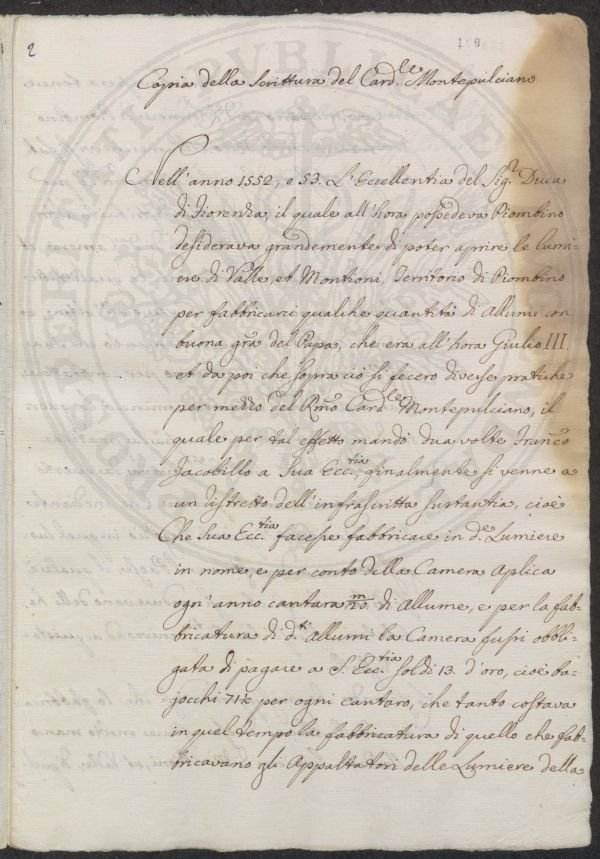 2
100
Copia della Scrittura del Card.le Montepulciano
Nell'anno 1552, o 53. L'Eccellentia del Sig.r Duca
di Fiorenza, il quale all'hora possedeva Piombino
desiderava grandemente di poter aprire le lumi=
ere di Valle, et Montioni, Territorio di Piombino
per fabbricarci qualche quantità di Allumi con
buona gr̃a del Papa, che era all'hora Giulio III.
et da poi che sopra ciò si fecero diverse pratiche
per mezzo del R̃mo Card.le Montepulciano, il
quale per tal effetto mandò dua volte Franc.o
Jacobillo a Sua Ecc.tia, finalmente si venne a
un ristretto dell'infrascritta sustantia, cioè
Che Sua Ecc.tia facesse fabbricare in d.e Lumiere
in nome, e per conto della Camera Aplica
ogn'anno cantara 20/m di Allume, e per la fab=
bricatura di d.ti Allumi la Camera fussi obbli=
gata di pagare a S. Ecc.tia soldi 13. d'oro, cioè ba=
jocchi 71½ per ogni cantaro, che tanto costava
in quel tempo la fabbricatura di quello che fab=
bricavano gli Appaltatori delle Lumiere della